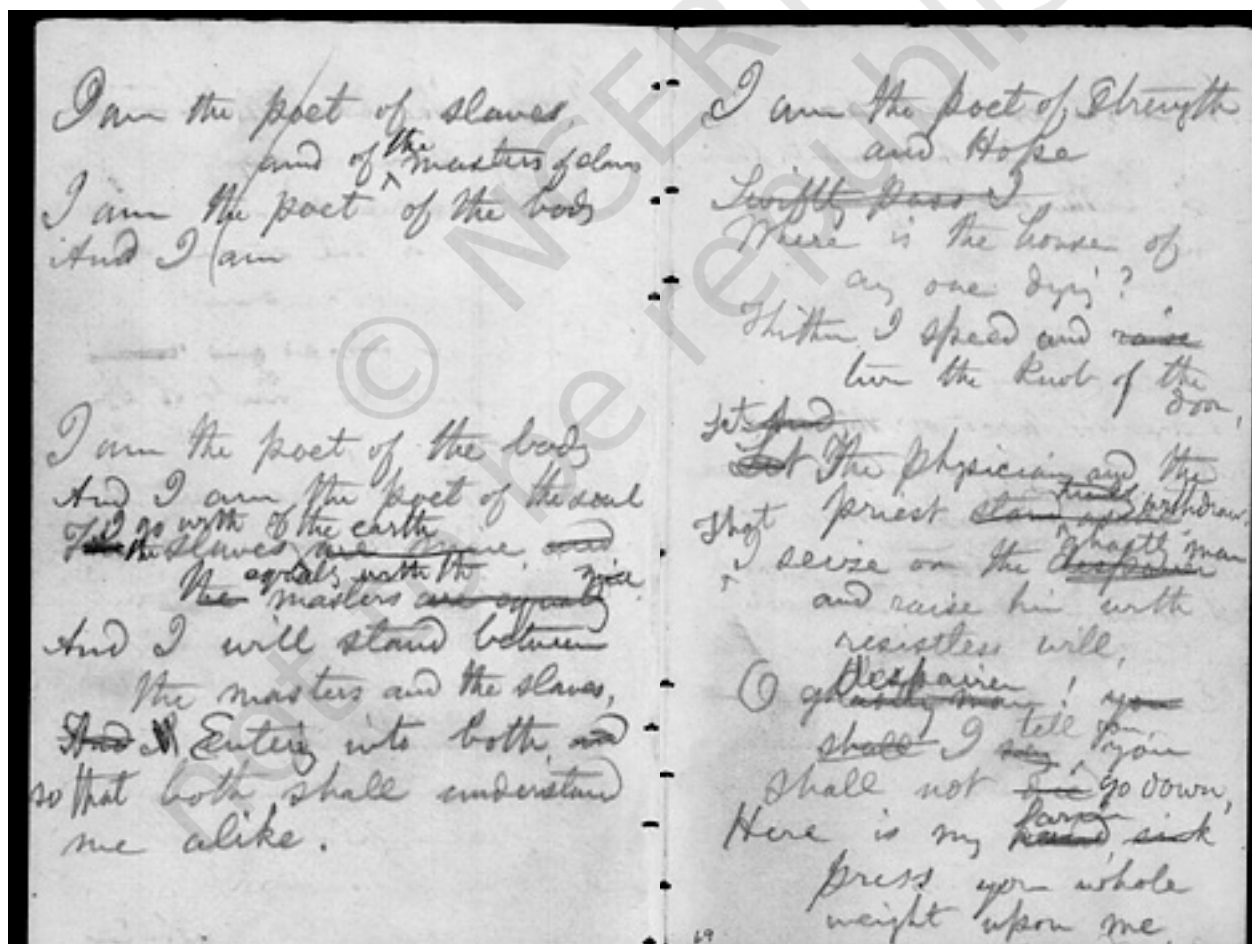 I am the poet of slaves,
and of the masters of slaves
I am the poet of the body
And I am
I am the poet of the body
And I am the poet of the soul
I go with the slaves of the earth are mine and
The equals with the masters are equally
And I will stand between
the masters and the slaves,
And I Entering into both, and
so that both shall understand
me alike.
I am the poet of Strength
and Hope
Swiftly pass I
Where is the house of
any one dying?
Thither I speed and raise
turn the knob of the
door,
Let
Let The physician and the
priest stand withdraw,
That I seize on the ghastly man
and raise him with
resistless will;
O despairer! you
shall I tell you,
shall not die go down,
Here is my hand sink
press your whole
weight upon me
69
© NCERT
not to be republished